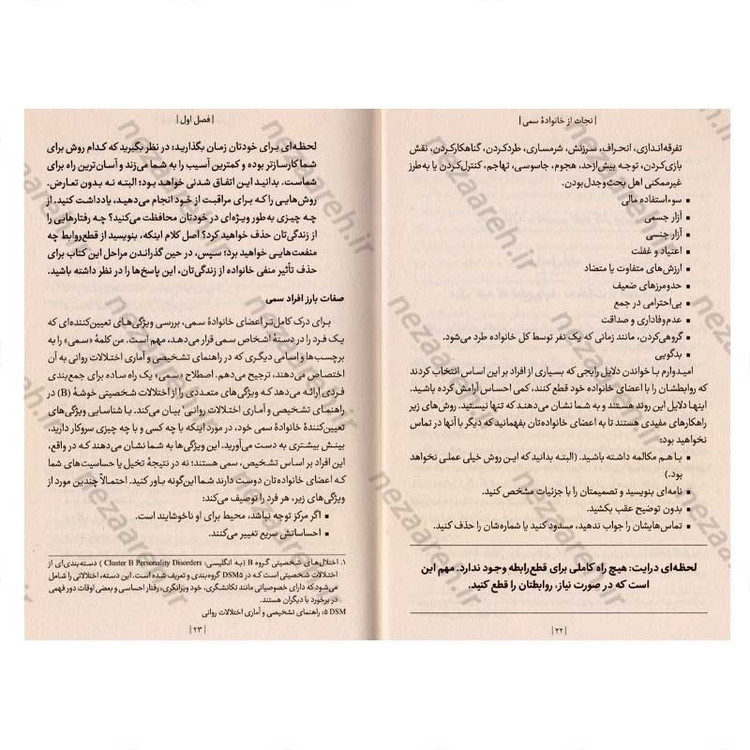 | نجات از خانوادهٔ سمی |
تفرقه‌اندازی، انحراف، سرزنش، شرمساری، طردکردن، گناهکارکردن، نقش
بازی‌کردن، توجه بیش‌ازحد، هجوم، جاسوسی، تهاجم، کنترل‌کردن یا به‌طرز
غیرممکنی اهل بحث‌وجدل‌بودن.
▪ سوءاستفاده مالی
▪ آزار جسمی
▪ آزار جنسی
▪ اعتیاد و غفلت
▪ ارزش‌های متفاوت یا متضاد
▪ حدومرزهای ضعیف
▪ بی‌احترامی در جمع
▪ عدم‌وفاداری و صداقت
▪ گروهی‌کردن، مانند زمانی که یک نفر توسط کل خانواده طرد می‌شود.
▪ بدگویی
امیدوارم با خواندن دلایل رایجی که بسیاری از افراد بر این اساس انتخاب کردند
که روابطشان را با اعضای خانواده خود قطع کنند، کمی احساس آرامش کرده باشید.
اینها دلایل این روند هستند و به شما نشان می‌دهند که تنها نیستید. روش‌های زیر
راهکارهای مفیدی هستند تا به اعضای خانواده‌تان بفهمانید که دیگر با آنها در تماس
نخواهید بود:
▪ با هم مکالمه داشته باشید. (البته بدانید که این روش خیلی عملی نخواهد
بود.)
▪ نامه‌ای بنویسید و تصمیمتان را با جزئیات مشخص کنید.
▪ بدون توضیح عقب بکشید.
▪ تماس‌هایشان را جواب ندهید، مسدود کنید یا شماره‌شان را حذف کنید.
لحظه‌ای درایت: هیچ راه کاملی برای قطع‌رابطه وجود ندارد. مهم این
است که در صورت نیاز، روابطتان را قطع کنید.
| ۲۲ |
| فصل اول |
لحظه‌ای برای خودتان زمان بگذارید؛ در نظر بگیرید که کدام روش برای
شما کارسازتر بوده و کمترین آسیب را به شما می‌زند و آسان‌ترین راه برای
شماست. بدانید این اتفاق شدنی خواهد بود؛ البته نه بدون تعارض.
روش‌هایی را که برای مراقبت از خود انجام می‌دهید، یادداشت کنید. از
چه چیزی به‌طور ویژه‌ای در خودتان محافظت می‌کنید؟ چه رفتارهایی را
از زندگی‌تان حذف خواهید کرد؟ اصل کلام اینکه، بنویسید از قطع‌روابط چه
منفعت‌هایی خواهید برد؛ سپس، در حین گذراندن مراحل این کتاب برای
حذف تأثیر منفی خانواده از زندگی‌تان، این پاسخ‌ها را در نظر داشته باشید.
صفات بارز افراد سمی
برای درک کامل‌تر اعضای خانوادهٔ سمی، بررسی ویژگی‌های تعیین‌کننده‌ای که
یک فرد را در دستهٔ اشخاص سمی قرار می‌دهد، مهم است. من کلمهٔ «سمی» را به
برچسب‌ها و اسامی دیگری که در راهنمای تشخیصی و آماری اختلالات روانی به آن
اختصاص می‌دهند، ترجیح می‌دهم. اصطلاح «سمی»، یک راه ساده برای جمع‌بندی
فردی ارائه می‌دهد که ویژگی‌های متعددی را از اختلالات شخصیتی خوشهٔ (B) در
راهنمای تشخیصی و آماری اختلالات روانی¹ بیان می‌کند. با شناسایی ویژگی‌های
تعیین‌کنندهٔ خانوادهٔ سمی خود، در مورد اینکه با چه کسی و با چه چیزی سروکار دارید،
بینش بیشتری به دست می‌آورید. این ویژگی‌ها به شما نشان می‌دهند که در واقع،
این افراد بر اساس تشخیص، سمی هستند؛ نه در نتیجهٔ تخیل یا حساسیت‌های شما
که اعضای خانواده‌تان دوست دارند شما این‌گونه باور کنید. احتمالاً چندین مورد از
ویژگی‌های زیر، هر فرد را توصیف می‌کند:
▪ اگر مرکز توجه نباشد، محیط برای او ناخوشایند است.
▪ احساساتش سریع تغییر می‌کنند.
۱. اختلال‌های شخصیتی گروه B (به انگلیسی: Cluster B Personality Disorders) دسته‌بندی‌ای از
اختلالات شخصیتی است که در DSM5 گروه‌بندی و تعریف شده است. این دسته، اختلالاتی را شامل
می‌شود که دارای خصوصیاتی مانند تکانشگری، خود ویرانگری، رفتار احساسی و بعضی اوقات دور فهمی
در برخورد با دیگران هستند.
DSM ۵: راهنمای تشخیصی و آماری اختلالات روانی
| ۲۳ |
nezaareh.ir